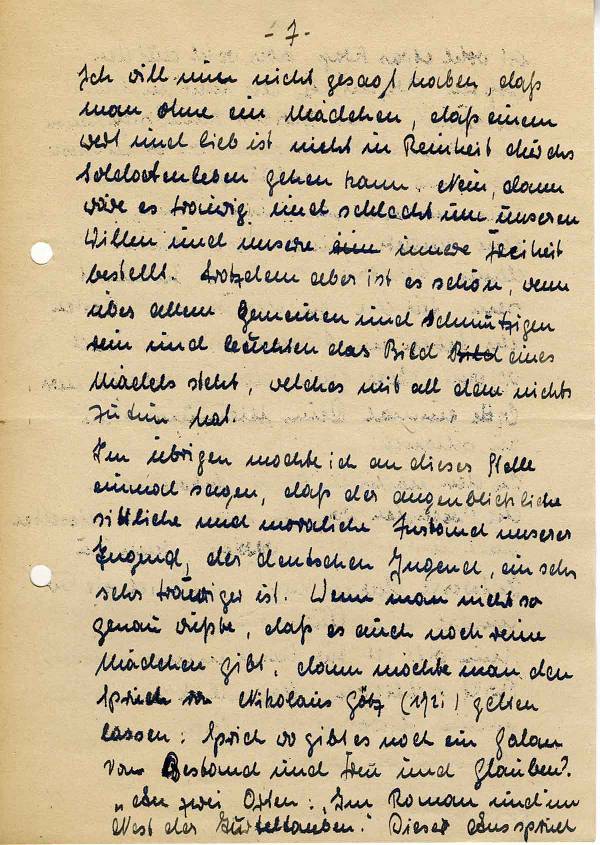 - 7 -
Ich will nun nicht gesagt haben, daß
man ohne ein Mädchen, daß einem
wert und lieb ist nicht in Reinheit durchs
Soldatenleben gehen kann. Nein, dann
wäre es traurig und schlecht um unseren
Willen und unsere innere Freiheit
bestellt. Trotzdem aber ist es schön, wenn
über allem Gemeinen und Schmutzigen
rein und leuchten das Bild eines
Mädels steht, welches mit all dem nichts
zu tun hat.
Im übrigen möchte ich an dieser Stelle
einmal sagen, daß der augenblickliche
sittliche und moralische Zustand unserer
Jugend, der deutschen Jugend, ein sehr
sehr trauriger ist. Wenn man nicht so
genau wüßte, daß es auch noch reine
Mädchen gibt, dann möchte man den
Spruch von Nikolaus Götz (1721) gelten
lassen: Sprich wo gibt es noch ein Galan
von Bestand und Treu und Glauben?
„An zwei Orten: „Im Roman und im
Nest der Turteltauben." Dieser Ausspruch